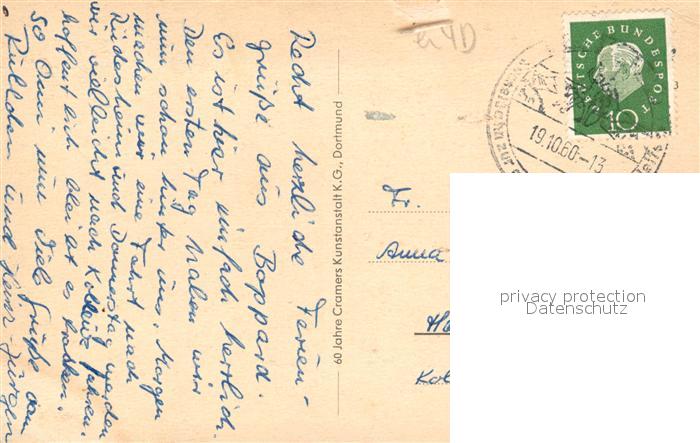 Recht herzliche Ferien-
grüße aus Boppard.
Es ist hier einfach herrlich.
Den ersten Tag haben wir
nun schon hinter uns. Morgen
machen wir eine Fahrt nach
Rüdesheim und Donnerstag werden
wir vielleicht nach Koblenz fahren.
hoffentlich bleibt es trocken.
So Omi nun viele Grüße von
und Hans-Jürgen
60 Jahre Cramers Kunstanstalt K.G., Dortmund
DEUTSCHE BUNDESPOST
10
19.10.60.-13
Fr.
Anna
privacy protection
Datenschutz